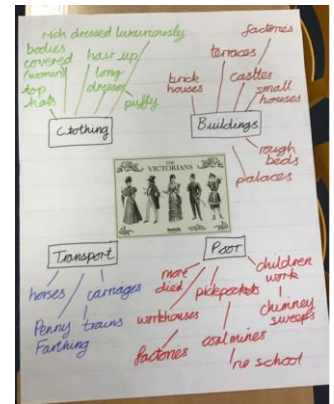 rich dressed luxuriously
bodies
covered
(women)
top
hats
hair up
long
dresses
puffy
Clothing
factories
terraces
castles
brick
houses
small
houses
Buildings
rough
beds
palaces
THE
VICTORIANS
Transport
horses
carriages
Penny
Farthing
trains
Poor
most
died
pickpockets
children
work
chimney
sweeps
workhouses
factories
coal mines
no school